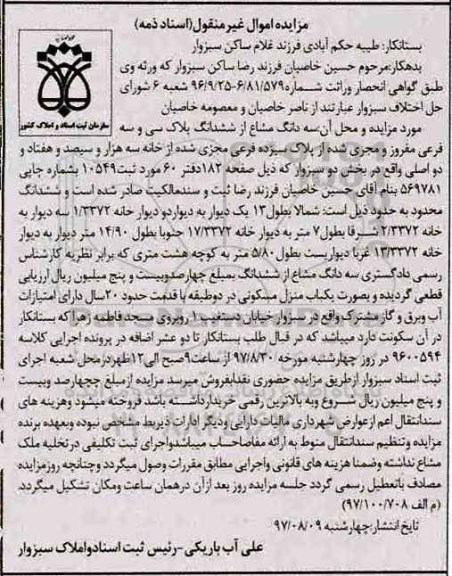 مزایده اموال غیرمنقول(اسناد ذمه)
بستانکار: طیبه حکم آبادی فرزند غلام ساکن سبزوار
بدهکار:مرحوم حسین خاصیان فرزند رضا ساکن سبزوار که ورثه وی
طبق گواهی انحصار وراثت شماره۶/۸۱/۵۷۹-۹۶/۹/۲۵ شعبه ۶ شورای
حل اختلاف سبزوار عبارتند از ناصر خاصیان و معصومه خاصیان
سازمان ثبت اسناد و املاک کشور
مورد مزایده و محل آن:سه دانگ مشاع از ششدانگ پلاک سی و سه
فرعی مفروز و مجزی شده از پلاک سیزده فرعی مجزی شده از خانه سه هزار و سیصد و هفتاد و
دو اصلی واقع در بخش دو سبزوار که ذیل صفحه ۱۸۲دفتر ۶۰ مورد ثبت۱۰۵۴۹ بشماره چاپی
۵۶۹۷۸۱ بنام آقای حسین خاصیان فرزند رضا ثبت و سندمالکیت صادر شده است و ششدانگ
محدود به حدود ذیل است: شمالا بطول۱۳ یک دیوار به دیواردو دیوار خانه ۱/۳۳۷۲ سه دیوار به
خانه ۲/۳۳۷۲ شرقا بطول۷ متر به دیوار خانه ۱۷/۳۳۷۲ جنوبا بطول ۱۴/۹۰ متر دیوار به دیوار
خانه ۱۳/۳۳۷۲ غربا دیواریست بطول۵/۸۰ متر به کوچه هشت متری که برابر نظریه کارشناس
رسمی دادگستری سه دانگ مشاع از ششدانگ بمبلغ چهارصدوبیست و پنج میلیون ریال ارزیابی
قطعی گردیده و بصورت یکباب منزل مسکونی در دوطبقه با قدمت حدود ۲۰سال دارای امتیازات
آب وبرق و گاز مشترک واقع در سبزوار خیابان دستغیب ۱۰ روبروی مسجد فاطمه زهرا که بستانکار
در آن سکونت دارد میباشد که در قبال طلب بستانکار تا دو عشر اضافه در پرونده اجرایی کلاسه
۹۶۰۰۵۹۴ در روز چهارشنبه مورخه ۹۷/۸/۳۰ از ساعت۹صبح الی۱۲ظهردرمحل شعبه اجرای
ثبت اسناد سبزوار ازطریق مزایده حضوری نقدابفروش میرسد مزایده ازمبلغ چهارصد وبیست
و پنج میلیون ریال شروع وبه بالاترین رقمی خریدارداشته باشد فروخته میشود وهزینه های
سندانتقال اعم ازعوارض شهرداری مالیات دارایی ودیگر ادارات ذیربط مشخص نبوده وبعهده برنده
مزایده وتنظیم سندانتقال منوط به ارائه مفاصاحساب میباشدواجرای ثبت تکلیفی در تخلیه ملک
مشاع نداشته وضمنا هزینه های قانونی واجرایی مطابق مقررات وصول میگردد وچنانچه روزمزایده
مصادف باتعطیل رسمی گردد جلسه مزایده روز بعد ازآن درهمان ساعت ومکان تشکیل میگردد.
(م الف ۹۷/۱۰۰/۷۰۸)
تایخ انتشار:چهارشنبه ۹۷/۰۸/۰۹
علی آب باریکی-رئیس ثبت اسنادواملاک سبزوار